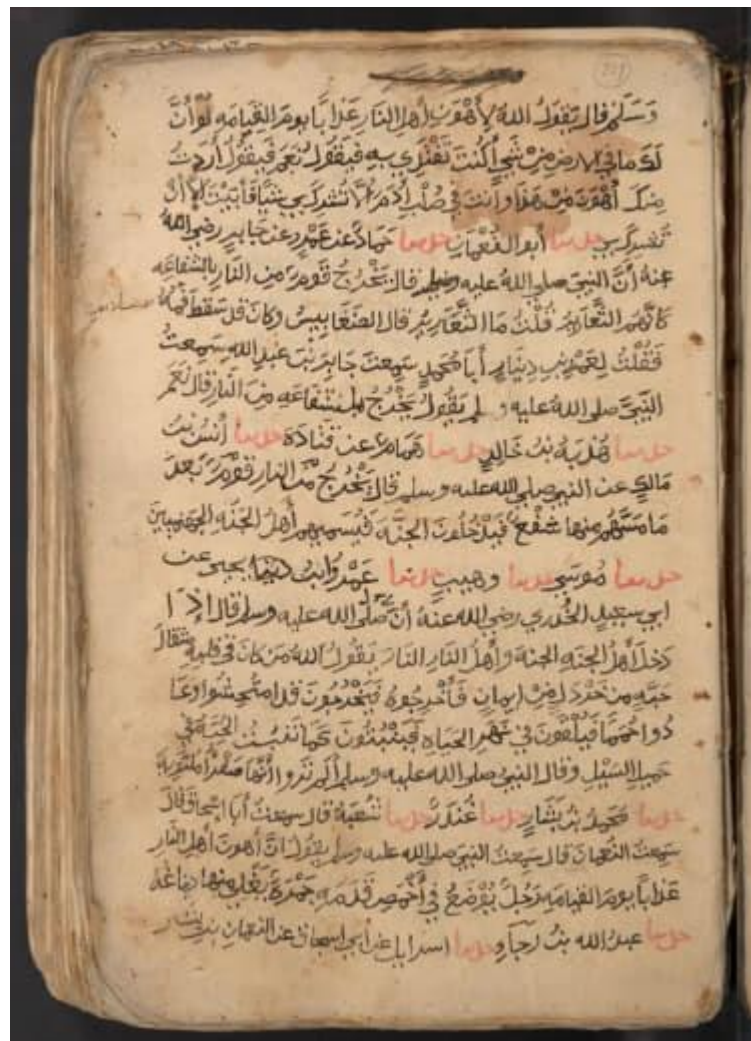 وَسَلَّمَ قال يَقولُ اللهُ لأَهْوَنِ أهل النَارِ عَذابًا يومَ القِيامَةِ لَوْ أنَّ
لَكَ ما في الارضِ مِنْ شَيْءٍ أكُنْتَ تَفْتَدِي بِهِ فيَقولُ نَعَمْ فَيَقُولُ أرَدْتُ
مِنْكَ أهْوَنَ مِنْ هذَا وأنتَ في صُلْبِ آدَمَ ألَّا تُشْرِكَ بي شيًا فأبَيْتَ إلا أنْ
تُشرِكَ بي حدثنا أبو النُّعْمَانِ حدثنا حَمادٌ عَنْ عَمْرٍو عن جَابِرٍ رضي اللهُ
عنهُ أنَّ النبيَّ صلى اللهُ عليه وسلم قال يَخْرُجُ قَومٌ مِن النَّارِ بالشفاعَةِ
كَأنَّهُم الثَّعَارِيرُ قُلْتُ مَا الثَّعَارِيرُ قال الضَّغَابِيسُ وكانَ قد سَقطَ فَمُهُ
فَقُلْتُ لِعَمْرِو بنِ دِينَارٍ أبَا مُحمدٍ سَمِعْتَ جَابِرَ بْنَ عَبدِ الله سَمِعتُ
النَّبيَّ صلى اللهُ عليه وسلم يَقُولُ يَخْرُجُ بالشفاعَهِ مِنَ النَّارِ قال نَعَم
حدثنا هُدْبَةُ بْنُ خَالِدٍ حدثنا هَمامٌ عن قَتَادَةَ حدثنا أنَسُ بْنُ
مَالكٍ عَن النبي صلى الله عليه وسلم قال يَخْرُجُ مِنَ النارِ قَومٌ بَعْدَ
مَا مَسَّهُم مِنها سَفْعٌ فَيَدْخُلُونَ الجنَّةَ فَيُسَمِّيهِم أهْلُ الجَنَّةِ الجَهَنَّمِيينَ
حدثنا مُوسَى حدثنا وهيبٌ حدثنا عَمْرُو ابنُ يحيى عن
ابي سعيدٍ الخُدْرِي رضي الله عنهُ أنَّ صَلّى الله عليه وسلم قال إذا
دَخَلَ أهْلُ الجنهِ الجنة وأهْلُ النَّارِ النارَ يَقُولُ اللهُ مَن كَانَ في قلبِهِ مثقالُ
حَبَّةٍ مِن خَرْدَلٍ مِنْ إيمانٍ فَأَخْرِجُوهُ فَيَخْرُجُونَ قَدِ امتُحِشُوا وَعَا
دُوا حُمَمًا فَيُلْقَوْنَ في نَهْرِ الحَيَاةِ فَيَنْبُتُونَ كَمَا تَنْبُتُ الحِبَّةُ في
حَمِيلِ السَّيْلِ وقال النبيُّ صلى الله عليه وسلم ألم تَرَوا أنَّها صَفْرَاءَ مُلتَوِيَةً
حدثنا مُحَمَّدُ بْنُ بَشَّارٍ حدثنا غُنْدَرٌ حدثنا شُعْبَةُ قال سمِعْتُ أبَا إسحَاقَ قالَ
سَمِعتُ النُّعْمَانَ قال سَمِعتُ النَّبيَّ صلى الله عليه وسلم يقُولُ إنَّ أهونَ أهل النَّارِ
عَذَابًا يومَ القيامَهِ لَرَجُلٌ تُوْضَعُ في أخْمَصِ قَدَمَيهِ جَمْرَةٌ يَغْلِي منها دِمَاغُهُ
حدثنا عبدُ الله بْنُ رَجَاءٍ حدثنا اسرايل عن أبي اسحاق عن النعمانِ بن بشير